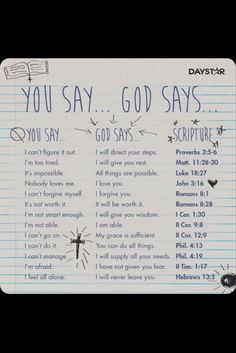 DAYSTAR
YOU SAY... GOD SAYS...
YOU SAY... GOD SAYS... SCRIPTURE
I can't figure it out. I will direct your steps. Proverbs 3:5-6
I'm too tired. I will give you rest. Matt. 11:28-30
It's impossible. All things are possible. Luke 18:27
Nobody loves me. I love you. John 3:16
I can't forgive myself. I forgive you. Romans 8:1
It's not worth it. It will be worth it. Romans 8:28
I'm not smart enough. I will give you wisdom. I Cor. 1:30
I'm not able. I am able. II Cor. 9:8
I can't go on. My grace is sufficient. II Cor. 12:9
I can't do it. You can do all things. Phil. 4:13
I can't manage. I will supply all your needs. Phil. 4:19
I'm afraid. I have not given you fear. II Tim. 1:17
I feel all alone. I will never leave you. Hebrews 13:5